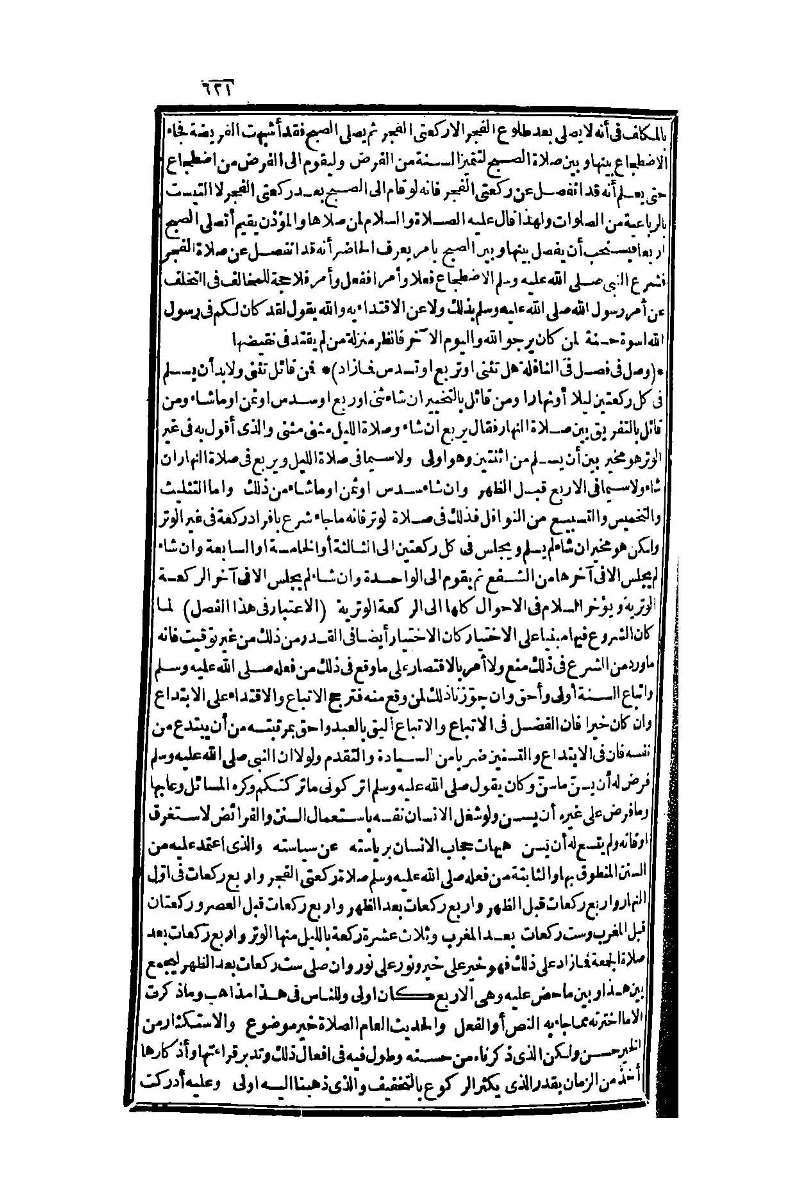 ٦٢١
بالمكلف فى أنه لا يصلى بعد طلوع الفجر الا ركعتى الفجر ثم يصلى الصبح فقد أشبهت الفريضة فجاء
الاضطجاع بينها وبين صلاة الصبح لتتميز السنة من الفرض وليقوم الى الفرض من اضطجاع
حتى يعلم أنه قد انفصل عن ركعتى الفجر فانه لو قام الى الصبح بعد ركعتى الفجر لا التبست
بالرباعية من الصلوات ولهذا قال عليه الصلاة والسلام لمن صلاها والمؤذن يقيم أتصلى الصبح
اربعا فيستحب أن يفصل بينها وبين الصبح بامر يعرف الحاضر أنه قد انفصل عن صلاة الفجر
فشرع النبى صلى الله عليه وسلم الاضطجاع فعلا وأمرا ففعل وأمر فلا حجة للمخالف فى التخلف
عن أمر رسول الله صلى الله عليه وسلم بذلك ولا عن الاقتداء به والله يقول لقد كان لكم فى رسول
الله اسوة حسنة لمن كان يرجو الله واليوم الآخر فانظر منزلة من لم يقتد فى نقيضها
*(وصل فى فصل فى النافلة هل تثنى او تربع او تسدس فما زاد)* فمن قائل تثنى ولا بد أن يسلم
فى كل ركعتين ليلا أو نهارا ومن قائل بالتخيير ان شاء ثنى او ربع او سدس او ثمن او ما شاء ومن
قائل بالتفريق بين صلاة النهار فقال يربع ان شاء وصلاة الليل مثنى مثنى والذى أقول به فى غير
الوتر هو مخير بين أن يسلم من اثنتين وهو اولى ولا سيما فى صلاة الليل ويربع فى صلاة النهار ان
شاء ولا سيما فى الاربع قبل الظهر وان شاء سدس او ثمن او ما شاء من ذلك واما التثليث
والتخميس والتسبيع من النوافل فذلك فى صلاة لوتر فانه ما جاء شرع بافراد ركعة فى غير الوتر
ولكن هو مخير ان شاء لم يسلم ويجلس فى كل ركعتين الى الثالثة أو الخامسة او السابعة وان شاء
لم يجلس الا فى آخرها من الشفع ثم يقوم الى الواحدة وان شاء لم يجلس الا فى آخر الركعة
الوترية ويؤخر السلام فى الاحوال كلها الى الركعة الوترية (الاعتبار فى هذا الفصل) لما
كان الشروع فيها مبنيا على الاختيار كان الاختيار أيضا فى القدر من ذلك من غير توقيت فانه
ما ورد من الشرع فى ذلك منع ولا أمر بالاقتصار على ما وقع فى ذلك من فعله صلى الله عليه وسلم
واتباع السنة أولى وأحق وان جوزنا ذلك لمن وقع منه فترجح الاتباع والاقتداء على الابتداع
وان كان خيرا فان الفضل فى الاتباع والاتباع اليق بالعبد واحق بمرتبته من أن يبتدع من
نفسه فان فى الابتداع والتسنين ضربا من السيادة والتقدم ولولا ان النبى صلى الله عليه وسلم
فرض له أن يسن ما سن وكان يقول صلى الله عليه وسلم اتركونى ما تركتكم وكره المسائل وعابها
وما فرض على غيره أن يسن ولو شغل الانسان نفسه باستعمال السنن والفرائض لاستغرق
اوقاته ولم يتسع له أن يسن هيهات حجاب الانسان برياسته عن سياسته والذى اعتمد عليه من
السنن المنطوق بها والثابتة من فعله صلى الله عليه وسلم صلاة ركعتى الفجر واربع ركعات فى اول
النهار واربع ركعات قبل الظهر واربع ركعات بعد الظهر واربع ركعات قبل العصر وركعتان
قبل المغرب وست ركعات بعد المغرب وثلاث عشرة ركعة بالليل منها الوتر واربع ركعات بعد
صلاة الجمعة فما زاد على ذلك فهو خير على خير ونور على نور وان صلى ست ركعات بعد الظهر ليجمع
بين هذا وبين ما حض عليه وهى الاربع كان اولى وللناس فى هذا مذاهب وما ذكرت
الا ما اخترته مما جاء به النص أو الفعل والحديث العام الصلاة خير موضوع والاستكثار من
الخير حسن ولكن الذى ذكرناه من حسنه وطول فيه فى افعال ذلك وتدبر قراءتها وأذكارها
أخذ من الزمان بقدر الذى يكثر الركوع بالتخفيف والذى ذهبنا اليه اولى وعليه أدركت